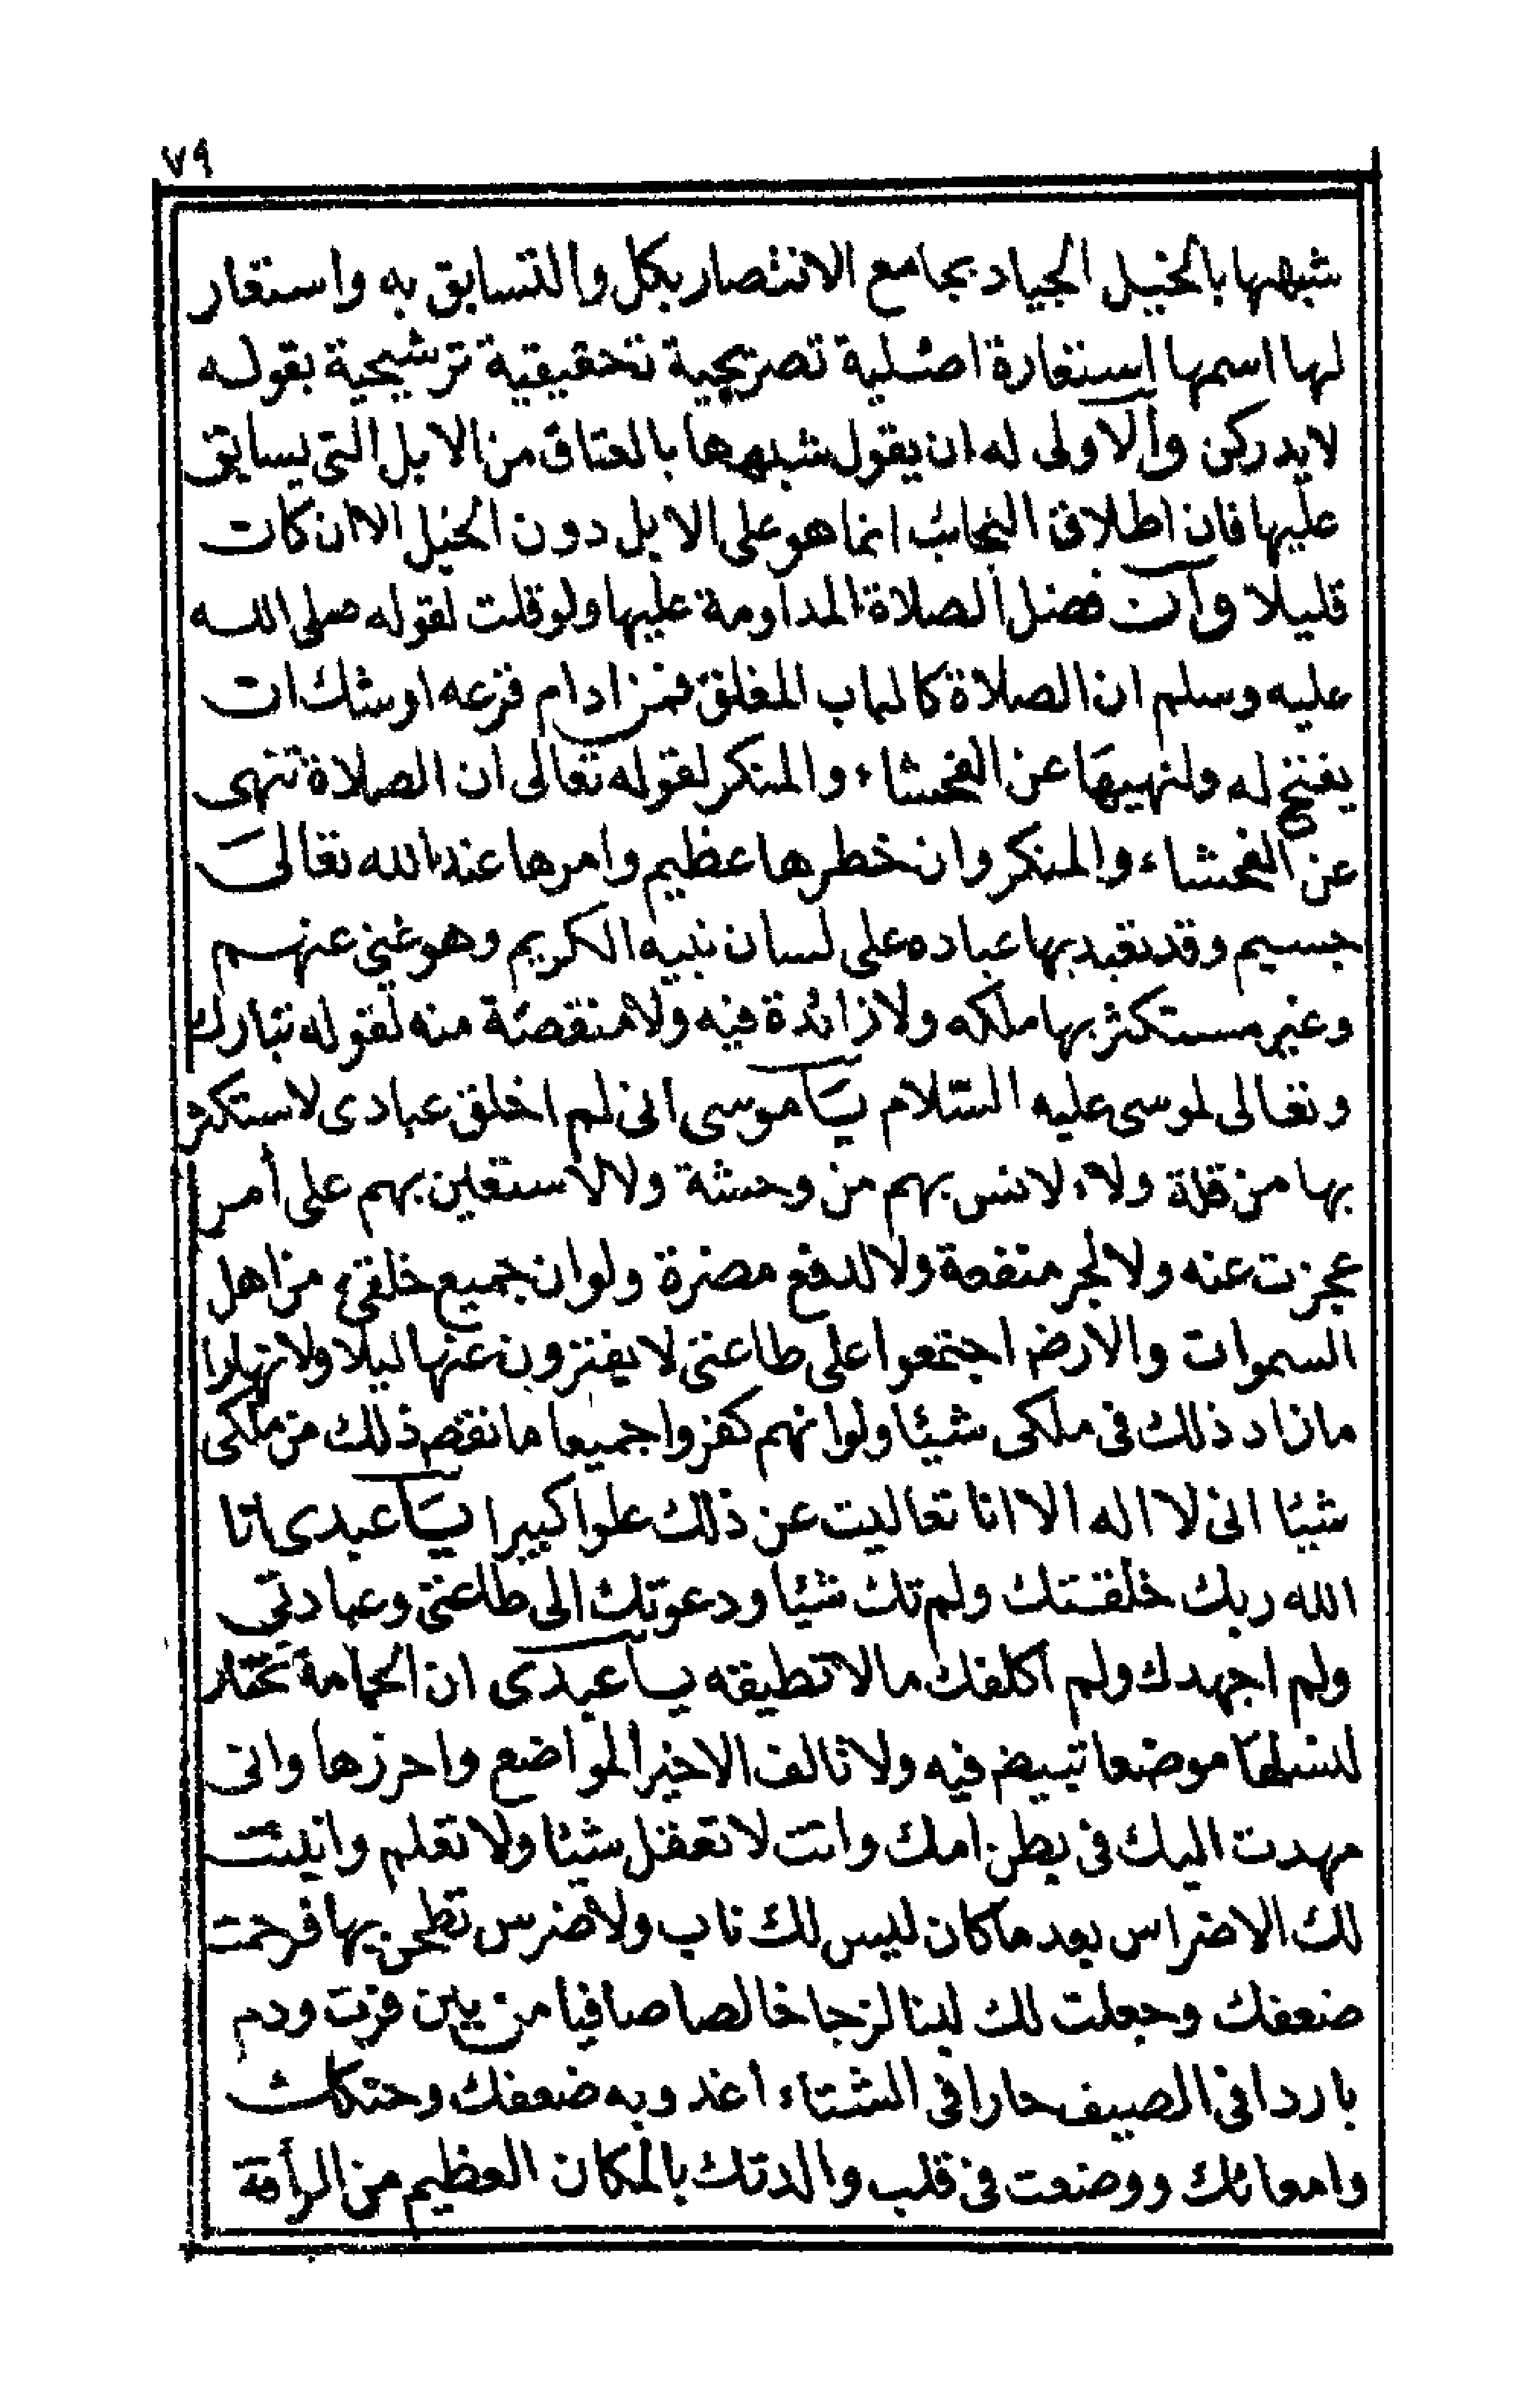 ٧٩
شبهها بالخيل الجياد بجامع الانتصار بكل والتسابق به واستعار
لها اسمها استعارة اصلية تصريحية تحقيقية ترشيحية بقوله
لا يدركن والاولى له ان يقول شبهها بالعتاق من الابل التى يسابق
عليها فان اطلاق النجائب انما هو على الابل دون الخيل الا ان كان
قليلا وان فضل الصلاة المداومة عليها ولو قلت لقوله صلى الله
عليه وسلم ان الصلاة كالباب المغلق فمن ادام قرعه اوشك ان
يفتح له ولنهيها عن الفحشاء والمنكر لقوله تعالى ان الصلاة تنهى
عن الفحشاء والمنكر وان خطرها عظيم وامرها عند الله تعالى
جسيم وقد تعبد بها عباده على لسان نبيه الكريم وهو غنى عنهم
وغير مستكثر بها ملكه ولا زائدة فيه ولا منقصة منه لقوله تبارك
وتعالى لموسى عليه السّلام يا موسى انى لم اخلق عبادى لاستكثر
بها من قلة ولا لانس بهم من وحشة ولا لاستعين بهم على أمر
عجزت عنه ولا لجر منفعة ولا لدفع مضرة ولو ان جميع خلقى من اهل
السموات والارض اجتمعوا على طاعتى لا يفترون عنها ليلا ولا نهارا
ما زاد ذلك فى ملكى شيئا ولو انهم كفروا جميعا ما نقص ذلك من ملكى
شيئا انى لا اله الا انا تعاليت عن ذلك علوا كبيرا يا عبدى انا
الله ربك خلقتك ولم تك شيئا ودعوتك الى طاعتى وعبادتى
ولم اجهدك ولم اكلفك ما لا تطيقه يا عبدى ان الحمامة تختار
لنسلها موضعا تبيض فيه ولا تالف الا خير المواضع واحرزها وانى
مهدت اليك فى بطن امك وانت لا تعقل شيئا ولا تعلم وانبتت
لك الاضراس بعد ما كان ليس لك ناب ولا ضرس تطحن بها فرحمت
ضعفك وجعلت لك لبنا لزجا خالصا صافيا من بين فرث ودم
باردا فى الصيف حارا فى الشتاء أغدو به ضعفك
وامعائك ووضعت فى قلب والدتك بالمكان العظيم من الرأفة